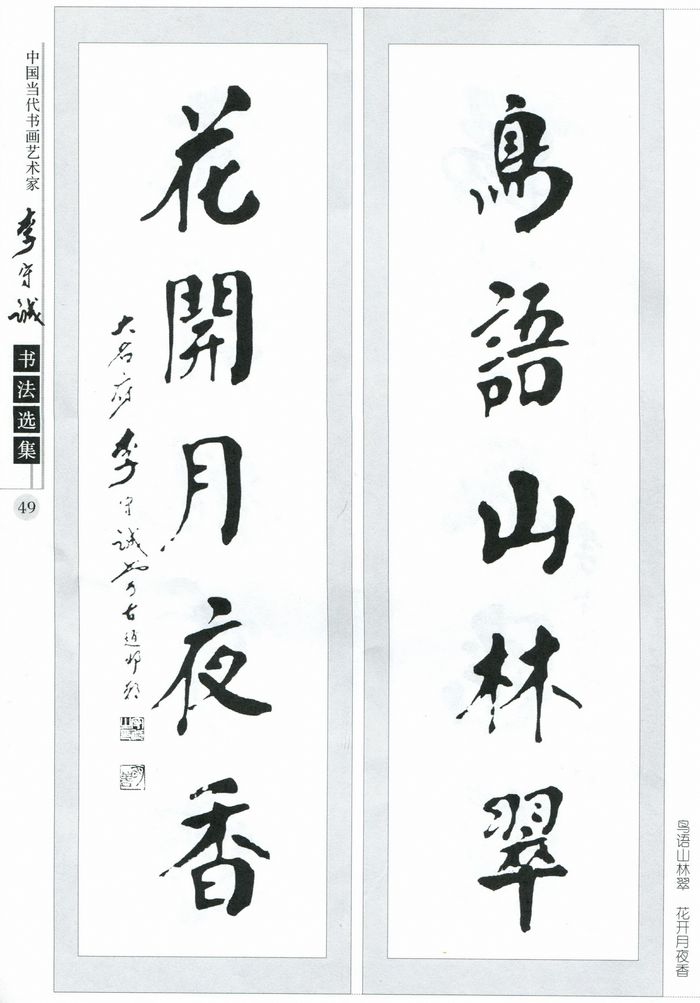 鳥語山林翠
花開月夜香
大名府李守誠书于古赵邯郸
鸟语山林翠 花开月夜香
中国当代书画艺术家
李守誠
书法选集
49